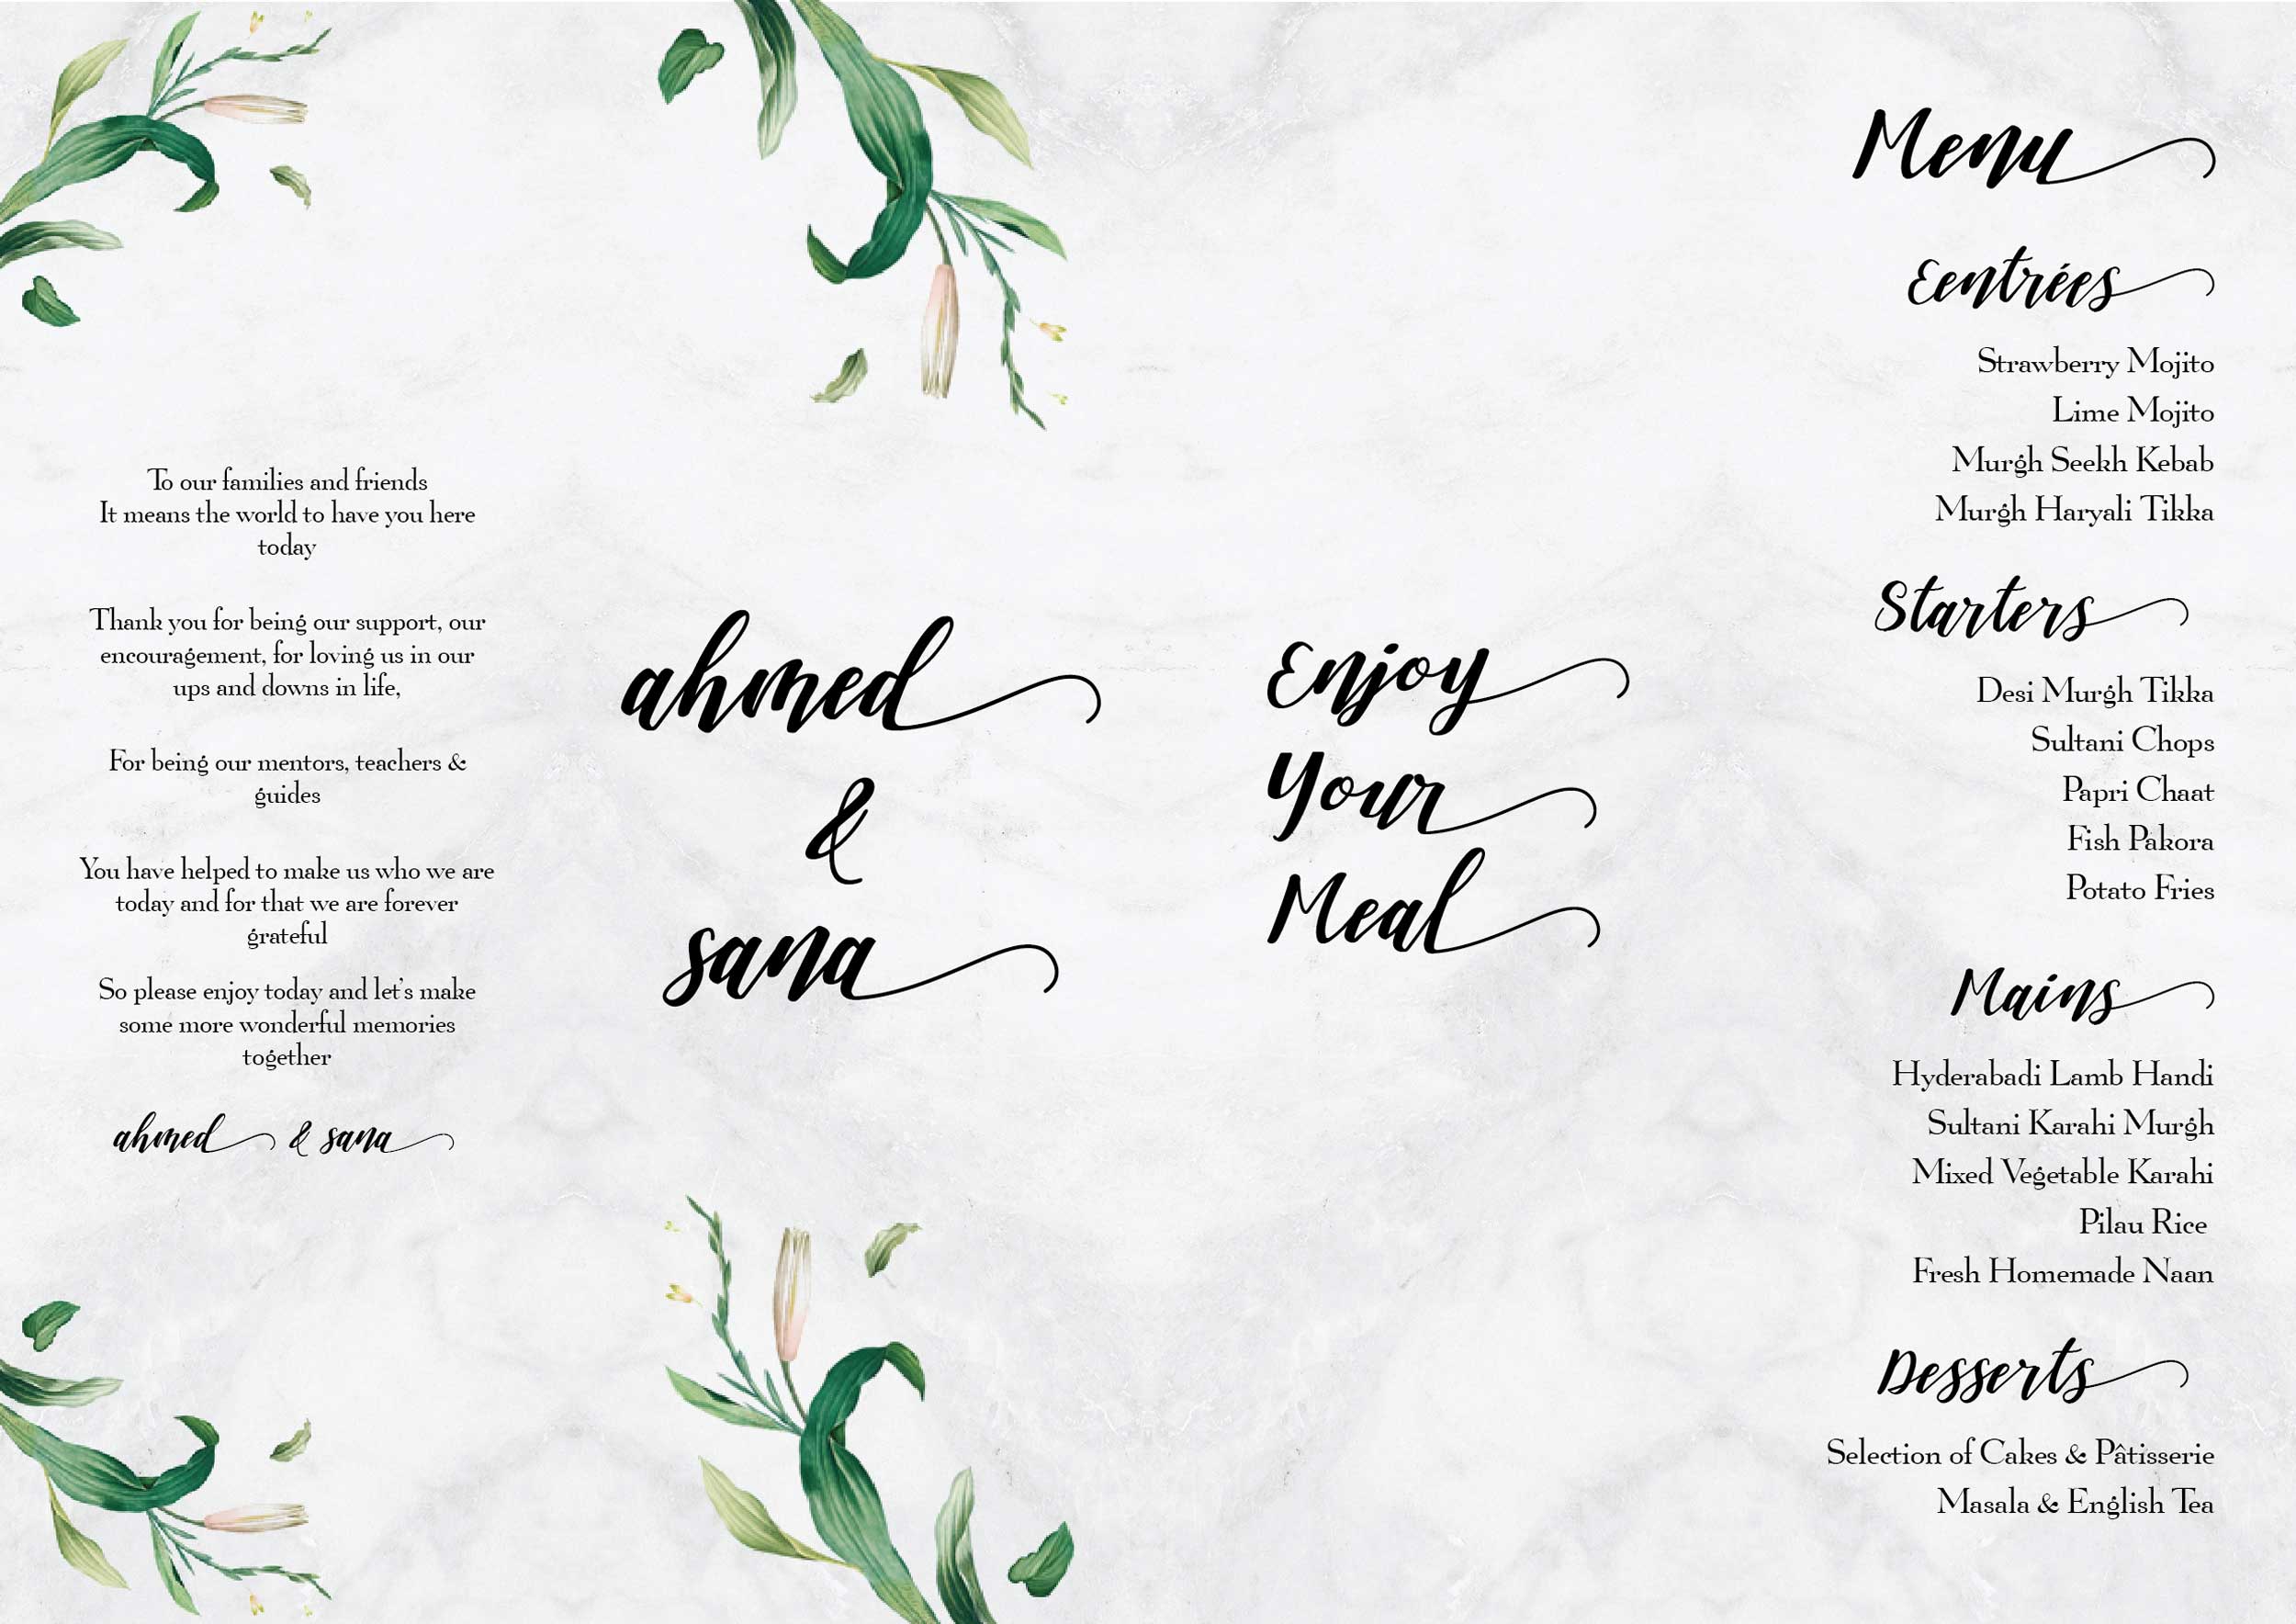 To our families and friends
It means the world to have you here
today
Thank you for being our support, our
encouragement, for loving us in our
ups and downs in life,
For being our mentors, teachers &
guides
You have helped to make us who we are
today and for that we are forever
grateful
So please enjoy today and let's make
some more wonderful memories
together
ahmed & sana
ahmed
&
sana
Enjoy
Your
Meal
Menu
Eentrées
Strawberry Mojito
Lime Mojito
Murgh Seekh Kebab
Murgh Haryali Tikka
Starters
Desi Murgh Tikka
Sultani Chops
Papri Chaat
Fish Pakora
Potato Fries
Mains
Hyderabadi Lamb Handi
Sultani Karahi Murgh
Mixed Vegetable Karahi
Pilau Rice
Fresh Homemade Naan
Desserts
Selection of Cakes & Pâtisserie
Masala & English Tea